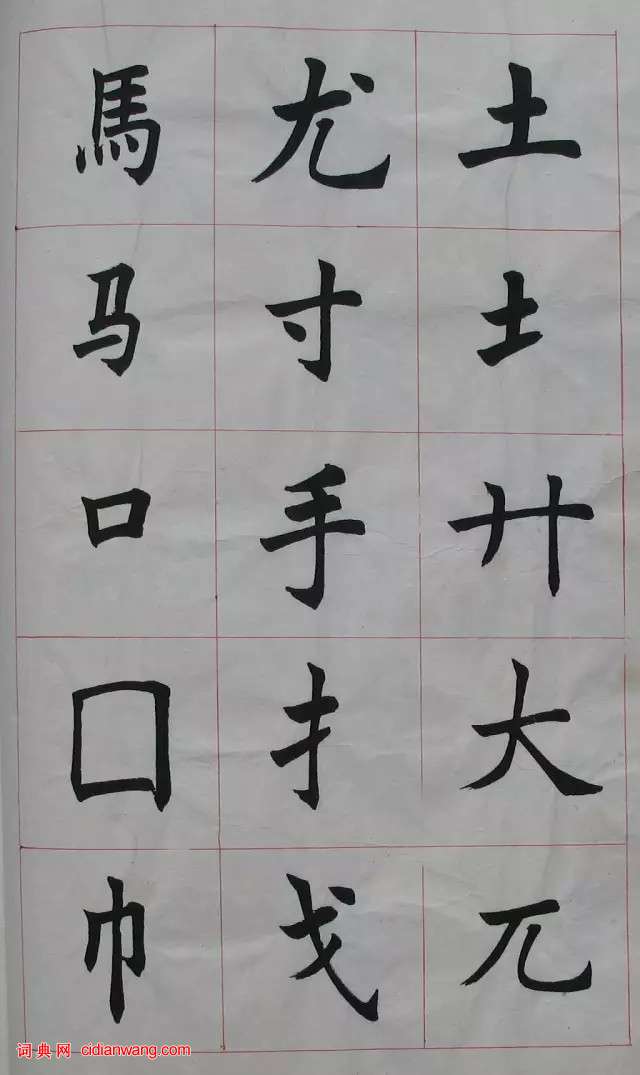 土土廾大兀
尤寸手扌戈
馬马口囗巾
词典网 cidianwang.com